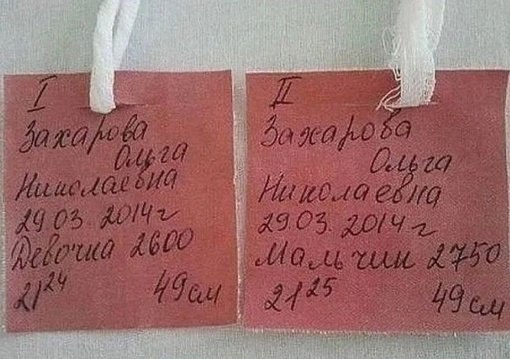 I
Захарова
Ольга
Николаевна
29.03.2014г
Девочка 2600
21²⁴ 49см
II
Захарова
Ольга
Николаевна
29.03.2014г
Мальчик 2750
21²⁵ 49см